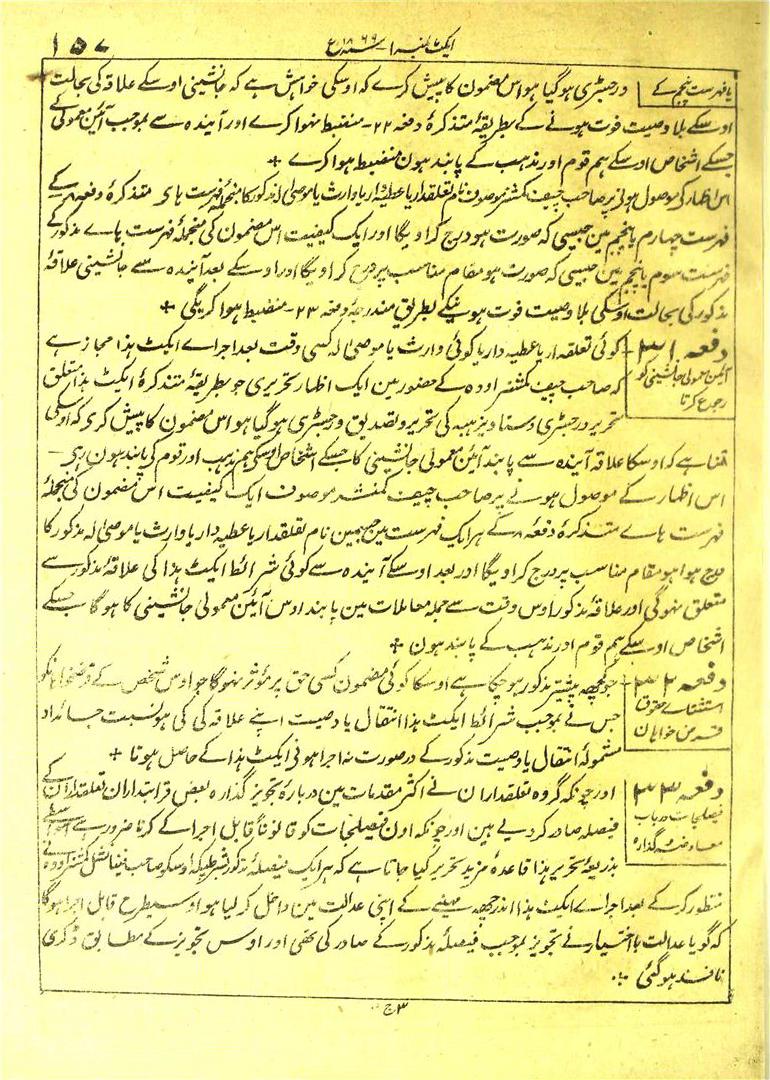 ایکٹ نمبر ا - سنہ ۱۸۶۹ع
۱۵۷
یا فہرست پنجم کے
درجسٹری ہوگیا ہو اس مضمون کا پیش کرے کہ اوسکی خواہش ہے کہ جانشینی اوسکے علاقہ کی بحالت
اوسکے بلا وصیت فوت ہونے کے بطریقۂ متذکرۂ دفعہ ۲۲ - منضبط نہوا کرے اور آیندہ سے بموجب آئین معمولی کے
جسکے اشخاص اوسکے ہم قوم اور مذہب کے پابند ہون منضبط ہوا کرے +
اس اظہار کی موصول ہونے پر صاحب چیف کمشنر موصوف نام تعلقدار یا عطیہ دار یا وارث یا موصیٰ لہ مذکور کا منجملہ فہرست ہای متذکرۂ دفعہ ۸ کے
فہرست چہارم یا پنجم مین جیسی کہ صورت ہو درج کراویگا اور ایک کیفیت اس مضمون کی منجملۂ فہرست ہاے مذکور کے
فہرست سوم یا پنجم مین جیسی کہ صورت ہو مقام مناسب پر درج کراویگا اور اوسکے بعد آیندہ سے جانشینی علاقۂ
مذکور کی بحالت اوسکی بلا وصیت فوت ہونیکے بطریق مندرجۂ دفعہ ۲۳ - منضبط ہوا کریگی +
دفعہ ۳۱ - کوئی تعلقدار یا عطیہ دار یا کوئی وارث یا موصیٰ لہ کسی وقت بعد اجراے ایکٹ ہذا مجاز ہے
آئین معمولی جانشینی کو
رجوع کرنا
کہ صاحب چیف کمشنر اودہ کے حضور مین ایک اظہار تحریری جو بطریقۂ متذکرۂ ایکٹ ہذا متعلق
تحریر و رجسٹری دستاویز ہبہ کی تحریر و تصدیق و رجسٹری ہوگیا ہو اس مضمون کا پیش کری کہ اوسکی
تمنا ہے کہ اوسکا علاقہ آیندہ سے پابند آئین معمولی جانشینی کا جسکے اشخاص اوسکی ہم مذہب اور قوم کی پابند ہون رہی -
اس اظہار کے موصول ہونے پر صاحب چیف کمشنر موصوف ایک کیفیت اس مضمون کی منجملۂ
فہرست ہاے متذکرۂ دفعۂ ۸ کے ہر ایک فہرست مین جسمین نام تعلقدار یا عطیہ دار یا وارث یا موصیٰ لہ مذکور کا
درج ہوا ہو مقام مناسب پر درج کراویگا اور بعد اوسکے آیندہ سے کوئی شرائط ایکٹ ہذا کی علاقۂ مذکور سے
متعلق نہوگی اور علاقہ مذکور اوس وقت سے جملہ معاملات مین پابند اوس آئین معمولی جانشینی کا ہوگا جسکے
اشخاص اوسکے ہم قوم اور مذہب کے پابند ہون +
دفعہ ۳۲ - جو کچھ پیشتر مذکور ہوچکا ہے اوسکا کوئی مضمون کسی حق پر مؤثر نہوگا جو اوس شخص کے قرضخواہانکو
استثناے حقوق
قرض خواہان
جس نے بموجب شرائط ایکٹ ہذا انتقال یا وصیت اپنے علاقہ کی کی ہو نسبت جائداد
مشمولۂ انتقال یا وصیت مذکور کے درصورت نہ اجرا ہونی ایکٹ ہذا کے حاصل ہوتا +
دفعہ ۳۳ - اور چونکہ گروہ تعلقداران نے اکثر مقدمات مین دربارۂ تجویز گذارہ بعض قرابتداران تعلقداران کے
فیصلجات درباب
معاوضہ گذارہ
فیصلہ صادر کردیے ہین اور چونکہ اون فیصلجات کو قانوناً قابل اجرا کے کرنا ضرور ہے اسواسطے
بذریعۂ تحریر ہذا قاعدۂ مزید تحریر کیا جاتا ہے کہ ہر ایک فیصلہ مذکور بشرطیکہ اوسکو صاحب فینانشل کمشنر اودہ نے
منظور کرکے بعد اجراے ایکٹ ہذا اندر چھہ مہینے کے اپنی عدالت مین داخل کرلیا ہو اوسیطرح قابل اجرا ہوگا
کہ گویا عدالت با اختیار نے تجویز بموجب فیصلۂ مذکور کے صادر کی تھی اور اوس تجویز کے مطابق ڈگری
نافذ ہوگئی
۳ج